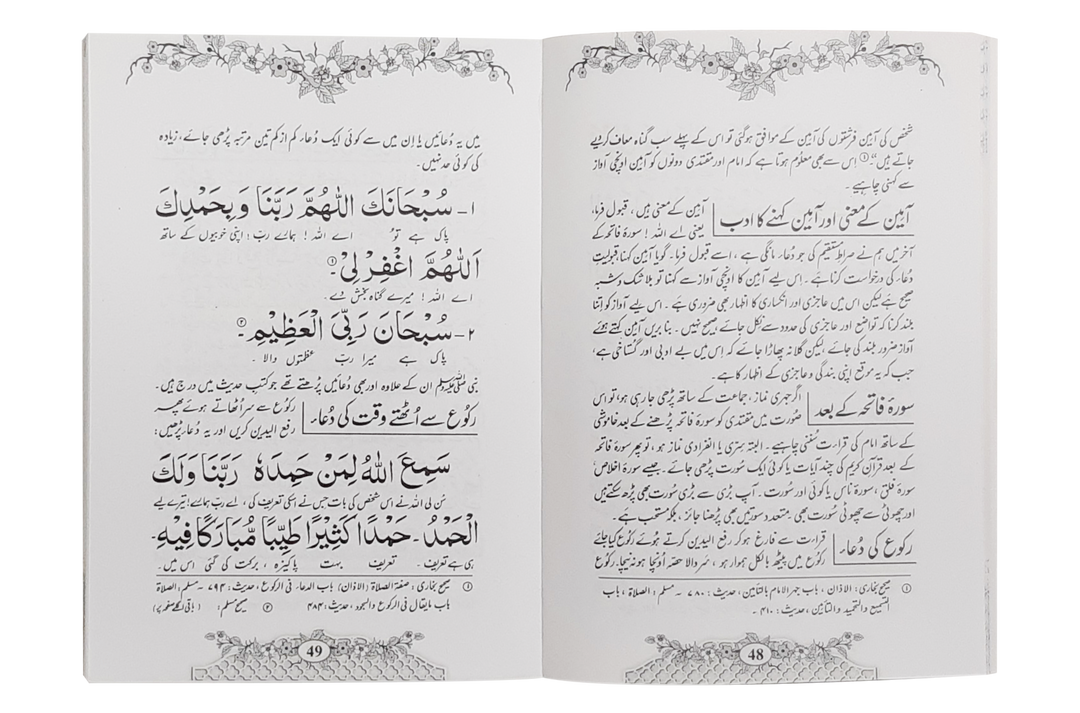 شخص کی آمین فرشتوں کی آمین کے موافق ہوگئی تو اس کے پہلے سب گناہ معاف کر دیے
جاتے ہیں"۔① اس سے بھی معلوم ہوتا ہے کہ امام اور مقتدی دونوں کو آمین اونچی آواز
سے کہنی چاہیے۔
آمین کے معنی اور آمین کہنے کا ادب
آمین کے معنی ہیں، قبول فرما،
یعنی اے اللہ! سورۂ فاتحہ کے
آخر میں ہم نے صراطِ مستقیم کی جو دُعا مانگی ہے، اسے قبول فرما۔ گویا آمین کہنا، قبولیتِ
دُعا کی درخواست کرنا ہے۔ اس لیے آمین کا اونچی آواز سے کہنا تو بلا شک و شبہ
صحیح ہے لیکن اس میں عاجزی اور انکساری کا اظہار بھی ضروری ہے۔ اس لیے آواز کو اتنا
بلند کرنا کہ تواضع اور عاجزی کی حدود سے نکل جائے، صحیح نہیں۔ بنا بریں آمین کہتے ہوئے
آواز ضرور بلند کی جائے، لیکن گلا نہ پھاڑا جائے کہ اس میں بے ادبی اور گستاخی ہے،
جب کہ یہ موقع اپنی بندگی و عاجزی کے اظہار کا ہے۔
سورۂ فاتحہ کے بعد
اگر جہری نماز، جماعت کے ساتھ پڑھی جا رہی ہو، تو اس
صورت میں مقتدی کو سورۂ فاتحہ پڑھنے کے بعد خاموشی
کے ساتھ امام کی قراءت سُننی چاہیے۔ البتہ سِرّی یا انفرادی نماز ہو، تو پھر سورۂ فاتحہ
کے بعد قرآن کریم کی چند آیات یا کوئی ایک سُورت پڑھی جائے۔ جیسے سورۂ اخلاص،
سورۂ فلق، سورۂ ناس یا کوئی اور سُورت۔ آپ بڑی سے بڑی سُورت بھی پڑھ سکتے ہیں
اور چھوٹی سے چھوٹی سُورت بھی۔ متعدد سورتیں بھی پڑھنا جائز، بلکہ مستحب ہے۔
رکوع کی دُعاء
قراءت سے فارغ ہو کر رفع الیدین کرتے ہوئے رکوع کیا جائے
رکوع میں پیٹھ بالکل ہموار ہو، سر والا حصّہ اُونچا ہو نہ نیچا۔ رکوع
① صحیح بخاری: الاذان، باب جہر الامام بالتأمین، حدیث: ۷۸۰۔ مسلم: الصلاة، باب
التسمیع والتحمید والتأمین، حدیث: ۴۱۰۔
48
میں یہ دُعائیں یا ان میں سے کوئی ایک دُعا، کم از کم تین مرتبہ پڑھی جائے، زیادہ
کی کوئی حد نہیں۔
۱۔ سُبْحَانَكَ اللّٰهُمَّ رَبَّنَا وَبِحَمْدِكَ
پاک ہے تُو اے اللہ! ہمارے ربّ! اپنی خوبیوں کے ساتھ
اَللّٰهُمَّ اغْفِرْ لِيْ۔①
اے اللہ! میرے گناہ بخش دے۔
۲۔ سُبْحَانَ رَبِّيَ الْعَظِيْمِ۔②
پاک ہے میرا ربّ عظمتوں والا۔
نبی ﷺ ان کے علاوہ اور بھی دُعائیں پڑھتے تھے جو کتب حدیث میں درج ہیں۔
رکوع سے اُٹھتے وقت کی دُعاء
رکوع سے سر اُٹھاتے ہوئے پھر
رفع الیدین کریں اور یہ دُعا پڑھیں:
سَمِعَ اللّٰهُ لِمَنْ حَمِدَهٗ رَبَّنَا وَلَكَ
سُن لی اللہ نے اس شخص کی بات جس نے اسکی تعریف کی، اے ربّ ہمارے! تیرے لیے
الْحَمْدُ۔ حَمْدًا كَثِيْرًا طَيِّبًا مُّبَارَكًا فِيْهِ۔
ہی ہے تعریف۔ تعریف بہت پاکیزہ، برکت کی گئی اس میں۔
① صحیح بخاری: صفة الصلاة (الاذان) باب الدعاء فی الرکوع، حدیث: ۷۹۴۔ مسلم: الصلاة
باب مایقال فی الرکوع والسجود، حدیث: ۴۸۴ ② صحیح مسلم: (باقی اگلے صفحہ پر)
49